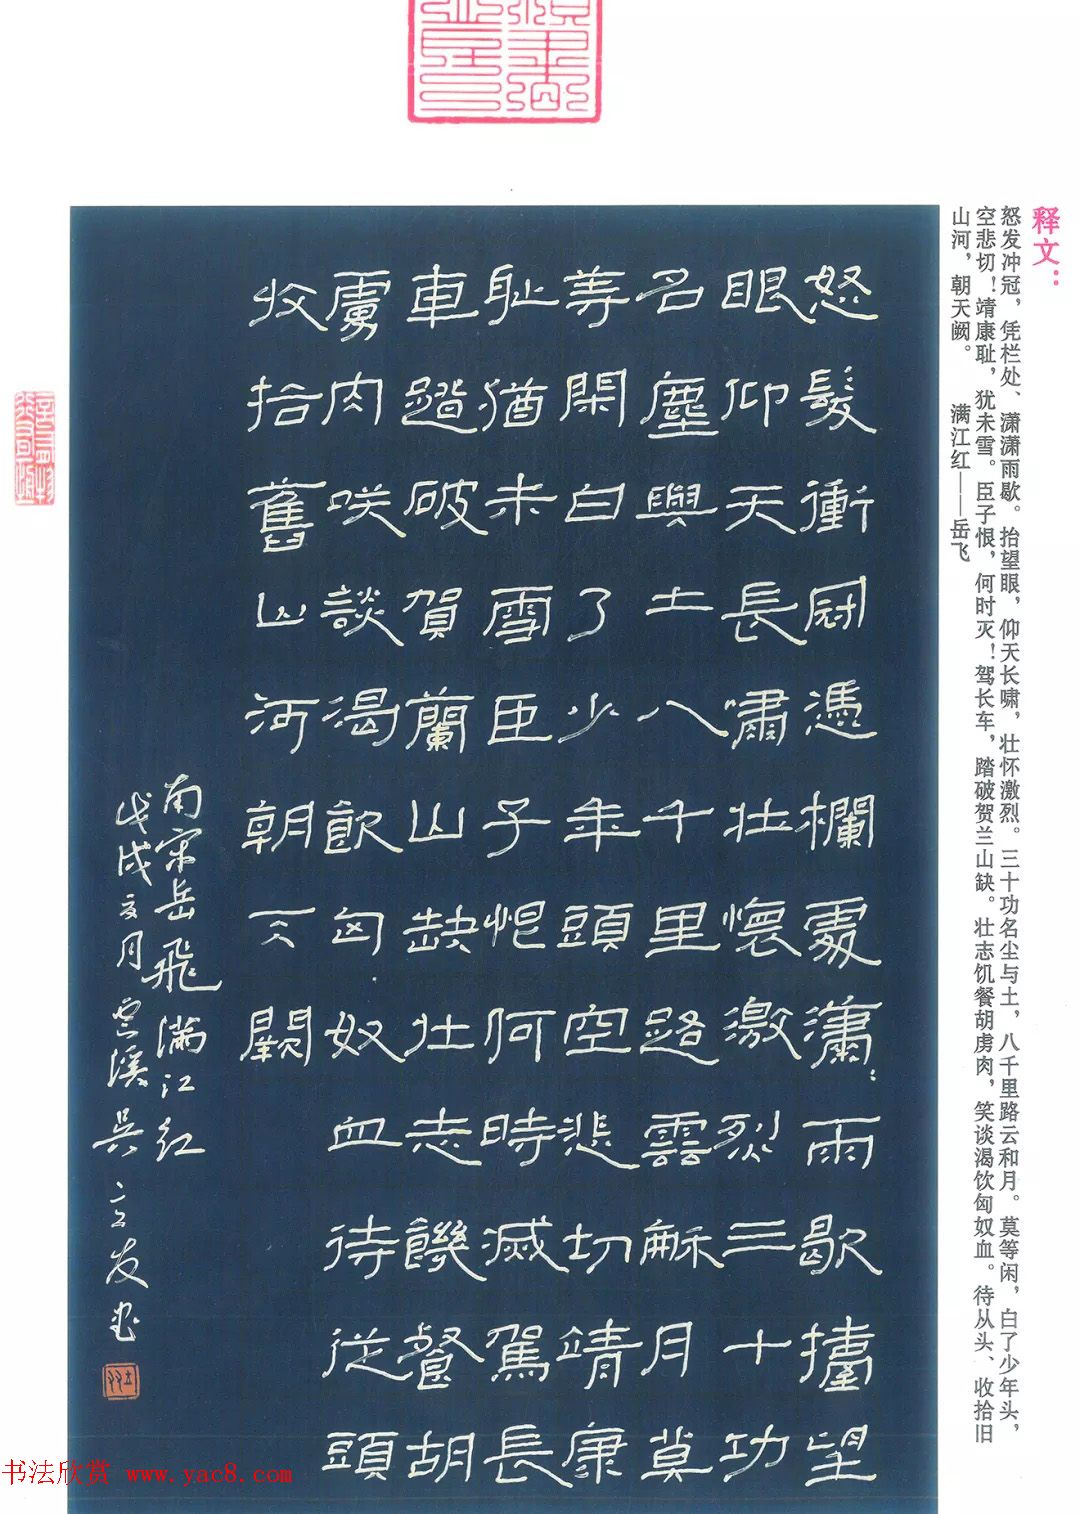 释文：
怒发冲冠，凭栏处、潇潇雨歇。抬望眼，仰天长啸，壮怀激烈。三十功名尘与土，八千里路云和月。莫等闲，白了少年头，
空悲切！靖康耻，犹未雪。臣子恨，何时灭！驾长车，踏破贺兰山缺。壮志饥餐胡虏肉，笑谈渴饮匈奴血。待从头、收拾旧
山河，朝天阙。 满江红——岳飞
怒髮衝冠憑欄處瀟:雨歇擡望
眼仰天長嘯壯懷激烈三十功
名塵與土八千里路雲龢月莫
等閑白了少年頭空悲切靖康
恥猶未雪臣子恨何時滅駕長
車蹈破賀蘭山缺壯志饑餐胡
虜肉咲談渴飲匈奴血待從頭
收拾舊山河朝天闕
南宋岳飛滿江紅
戊戌夏月雲溪吳立发书
书法欣赏 www.yac8.com